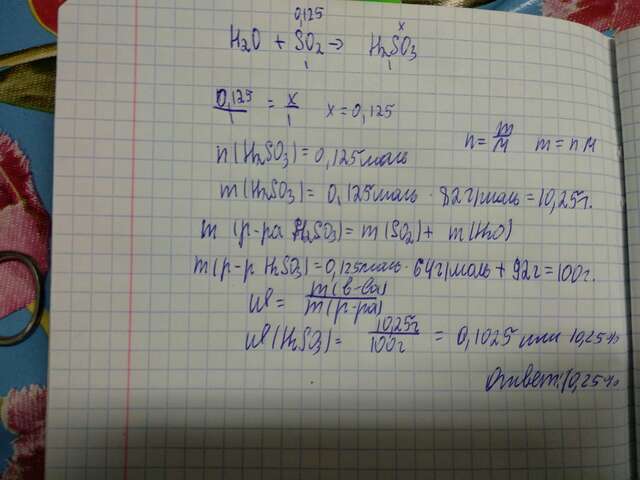 0,125 x
H₂O + SO₂ → H₂SO₃
1 1
0,125/1 = x/1 x = 0,125
n(H₂SO₃) = 0,125моль n = m/M m = n·M
m(H₂SO₃) = 0,125моль · 82г/моль = 10,25г.
m (р-ра H₂SO₃) = m(SO₂) + m(H₂O)
m(р-р H₂SO₃ = 0,125моль · 64г/моль + 92г = 100г.
w = m(в-ва)/m(р-ра)
w(H₂SO₃) = 10,25г/100г = 0,1025 или 10,25%
Ответ: 10,25%